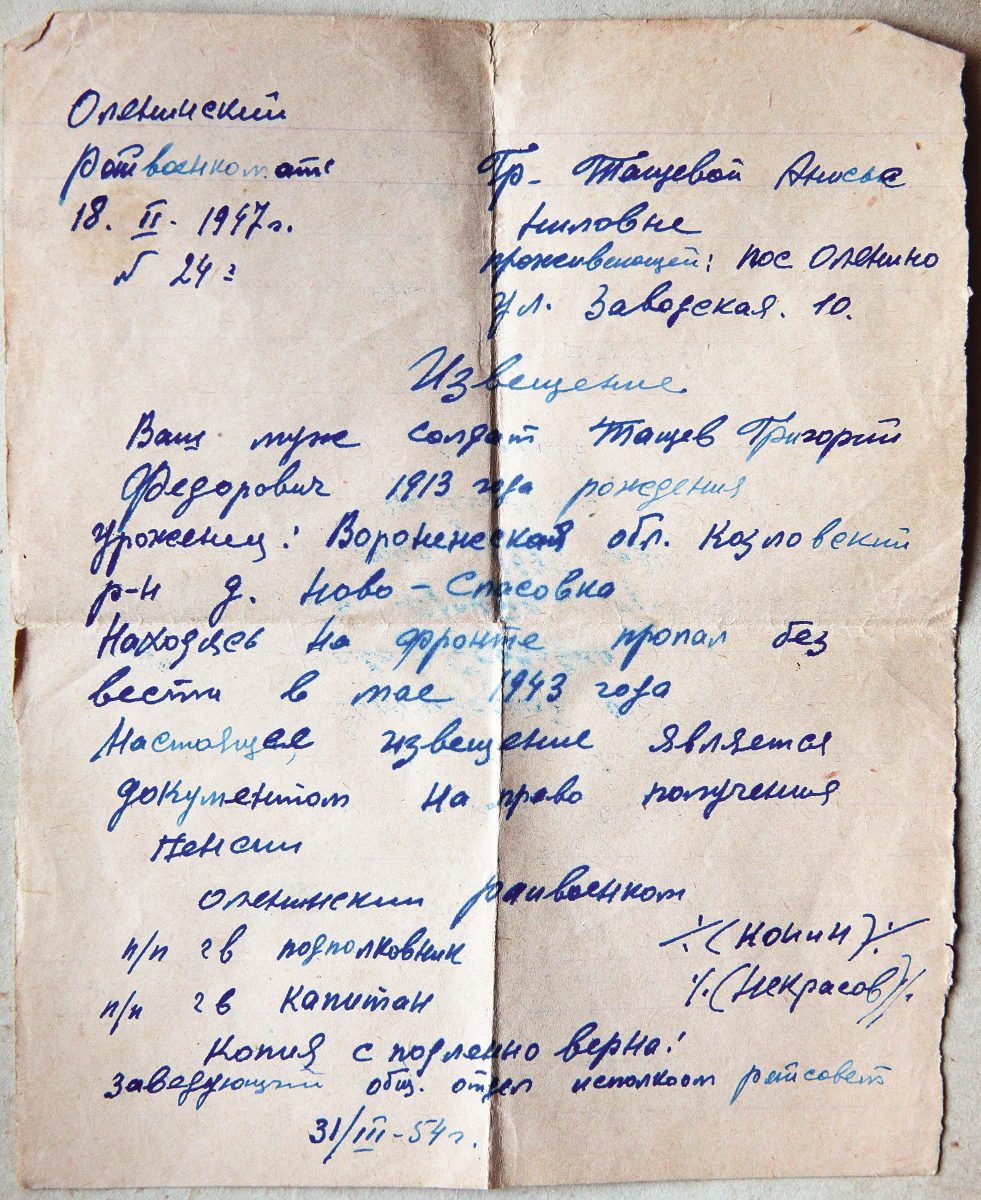 Оленинский
Райвоенкомат
18. II - 1947 г.
№ 24 г
Гр- Тащевой Анисье
Ниловне
проживающей: пос Оленино
ул. Заводская. 10.
Извещение
Ваш муж солдат Тащев Григорий
Федорович 1913 года рождения
Уроженец: Воронежской обл. Козловский
р-н д. Ново-Спасовка
Находясь на фронте пропал без
вести в мае 1943 года
Настоящее извещение является
документом на право получения
пенсии
Оленинский райвоенком
п/п гв подполковник ./. (Конин) ./.
п/п гв капитан ./. (Некрасов) ./.
Копия с подленно верна!
Заведующий общ. отдел исполком райсовет
31/III-54 г.